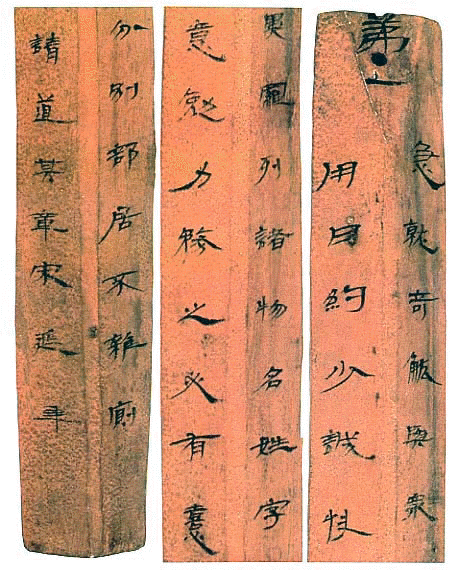 第•一
急就奇觚與衆
用日約少誠快
異羅列諸物名姓字
意勉力務之必有憙
分別部居不雜廁
請道其章宋延年